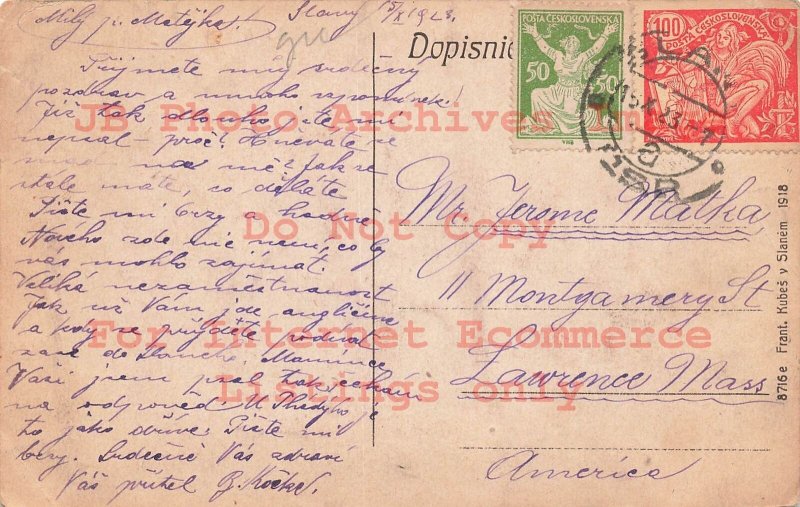 Milý p. Matějka! Slaný 15/X 1923.
Přijmete můj srdečný
pozdrav a mnoho vzpomínek!
Již tak dlouho jste mi
nepsal – proč? Hněváte se
snad na mě? Jak se
stále máte, co děláte
Pište mi brzy a hodně
Nového zde nic není, co by
vás mohlo zajímat.
Veliká nezaměstnanost
Jak už Vám jde angličina
a kdy se přijdete podívat
zase do Slaného. Mamince
Vaší jsem psal tak čekám
na odpověd. U je
to jako dříve. Pište mi
brzy. Srdečně Vás zdraví
Váš přítel
Dopisnic
POŠTA ČESKOSLOVENSKÁ
50 50
100
POŠTA ČESKOSLOVENSKÁ
SLAN
15.X.23
Mr. Jerome Matka
11 Montgamery St
Lawrence Mass
America
8716e Frant. Kubeš v Slaném 1918
JB Photo Archives
Do Not Copy
For Internet Ecommerce
Listings only